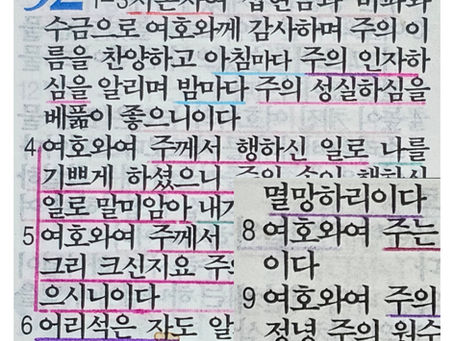 수금으로 여호와께 감사하며 주의 이
름을 찬양하고 아침마다 주의 인자하
심을 알리며 밤마다 주의 성실하심을
베풂이 좋으니이다
4 여호와여 주께서 행하신 일로 나를
기쁘게 하셨으니
일로 말미암아 내가
5 여호와여 주께서
그리 크신지요 주
으시니이다
6 어리석은 자도 알
멸망하리이다
8 여호와여 주는
이다
9 여호와여 주의
정녕 주의 원수